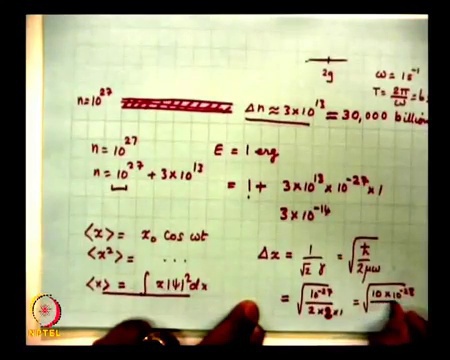 2g
ω = 1 s⁻¹
T = 2π/ω = 6.
n=10²⁷
Δn ≈ 3×10¹³ = 30,000 billion
n = 10²⁷
E = 1 erg
n = 10²⁷ + 3×10¹³
= 1 + 3×10¹³ × 10⁻²⁷ × 1
3×10⁻¹⁴
⟨x⟩ = x₀ cos ωt
⟨x²⟩ = ...
Δx = 1/(√2 γ) = √(ħ/2μω)
⟨x⟩ = ∫ x|ψ|² dx
= √(10⁻²⁷/(2×2×1)) = √(10×10⁻²⁸
NPTEL